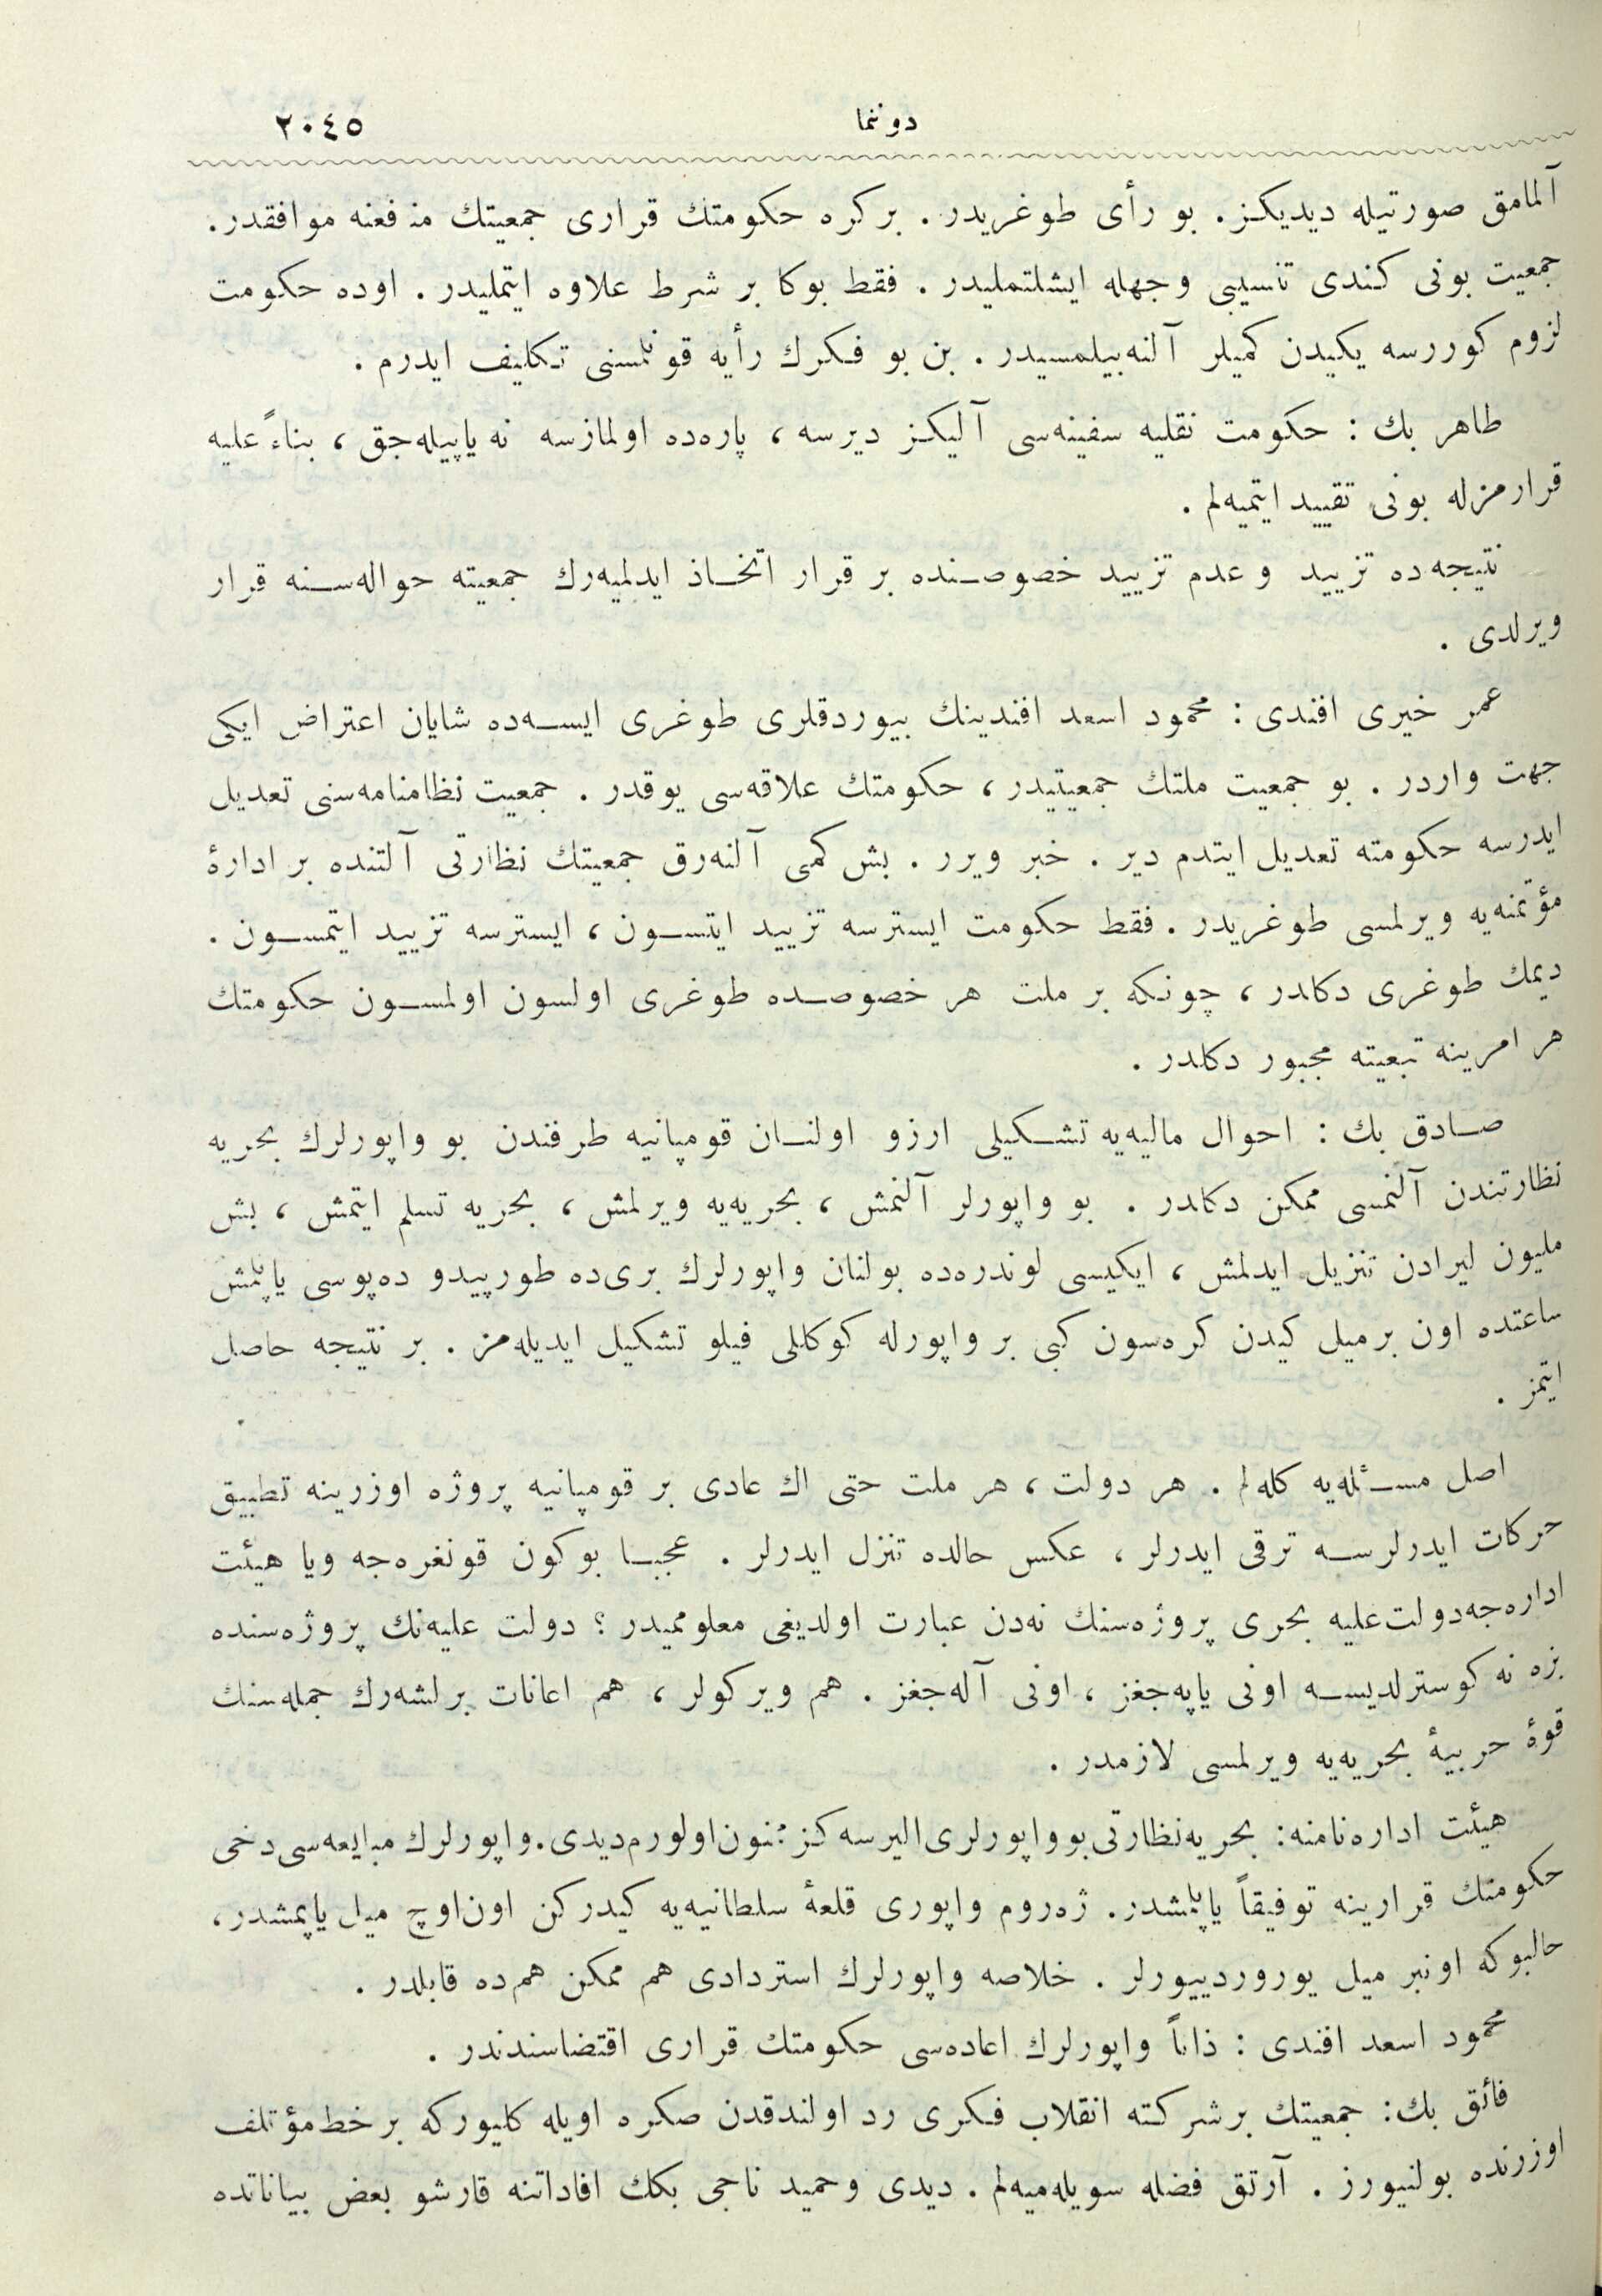 دوننما
٢٠٤٥
آلمامق صورتيله ديديكز . بو رأى طوغريدر . بركره حكومتك قرارى جمعيتك منافعنه موافقدر .
جمعيت بونى كندى تنسيبى وجهله ايشلتمليدر . فقط بوكا بر شرط علاوه ايتمليدر . اوده حكومت
لزوم كوررسه يكيدن كميلر آلنه‌بيلمسيدر . بن بو فكرك رأيه قونلمسنى تكليف ايدرم .
طاهر بك : حكومت نقليه سفينه‌سى آليكز ديرسه ، پاره‌ده اولمازسه نه ياپيله‌جق ، بناءً عليه
قرارمزله بونى تقييد ايتميه‌لم .
نتيجه‌ده تزييد وعدم تزييد خصوصنده بر قرار اتخاذ ايدلميه‌رك جمعيته حواله‌سنه قرار
ويرلدى .
عمر خيرى افندى : محمود اسعد افندينك بيوردقلرى طوغرى ايسه‌ده شايان اعتراض ايكى
جهت واردر . بو جمعيت ملتك جمعيتيدر ، حكومتك علاقه‌سى يوقدر . جمعيت نظامنامه‌سنى تعديل
ايدرسه حكومته تعديل ايتدم دير . خبر ويرر . بش كمى آلنه‌رق جمعيتك نظارتى آلتنده بر ادارهٔ
مؤتمنه‌يه ويرلمسى طوغريدر . فقط حكومت ايسترسه تزييد ايتسون ، ايسترسه تزييد ايتمسون .
ديمك طوغرى دكلدر ، چونكه بر ملت هر خصوصده طوغرى اولسون اولمسون حكومتك
هر امرينه تبعيته مجبور دكلدر .
صادق بك : احوال ماليه‌يه تشكيلى ارزو اولنان قومپانيه طرفندن بو واپورلرك بحريه
نظارتندن آلنمسى ممكن دكلدر . بو واپورلر آلنمش ، بحريه‌يه ويرلمش ، بحريه تسلم ايتمش ، بش
مليون ليرادن تنزيل ايدلمش ، ايكيسى لوندره‌ده بولنان واپورلرك برى‌ده طورپيدو ده‌پوسى ياپلمش
ساعتده اون برميل كيدن كره‌سون كبى بر واپورله كوكللى فيلو تشكيل ايديله‌مز . بر نتيجه حاصل
ايتمز .
اصل مسئله‌يه كله‌لم . هر دولت ، هر ملت حتى اك عادى بر قومپانيه پروژه اوزرينه تطبيق
حركات ايدرلرسه ترقى ايدرلر ، عكس حالده تنزل ايدرلر . عجبا بوكون قونغره‌جه ويا هيئت
اداره‌جه دولت عليه بحرى پروژه‌سنك نه‌دن عبارت اولديغى معلومميدر ؟ دولت عليه‌نك پروژه‌سنده
بزه نه كوسترلديسه اونى ياپه‌جغز ، اونى آله‌جغز . هم ويركولر ، هم اعانات برلشه‌رك جمله‌سنك
قوهٔ حربيهٔ بحريه‌يه ويرلمسى لازمدر .
هيئت اداره‌ نامنه : بحريه نظارتى بو واپورلرى اليرسه‌كز ممنون اولورم ديدى . واپورلرك مبايعه‌سى دخى
حكومتك قرارينه توفيقاً ياپلمشدر . ژه‌روم واپورى قلعهٔ سلطانيه‌يه كيدركن اون اوچ ميل ياپمشدر ،
حالبوكه اونبر ميل يوروردييورلر . خلاصه واپورلرك استردادى هم ممكن هم‌ده قابلدر .
محمود اسعد افندى : ذاتاً واپورلرك اعاده‌سى حكومتك قرارى اقتضاسندندر .
فائق بك : جمعيتك بر شركته انقلاب فكرى رد اولندقدن صكره اويله كليوركه بر خط مؤتلف
اوزرنده بولنيورز . آرتق فضله سويله‌ميه‌لم . ديدى وحميد ناجى بكك افاداتنه قارشو بعض بياناتده